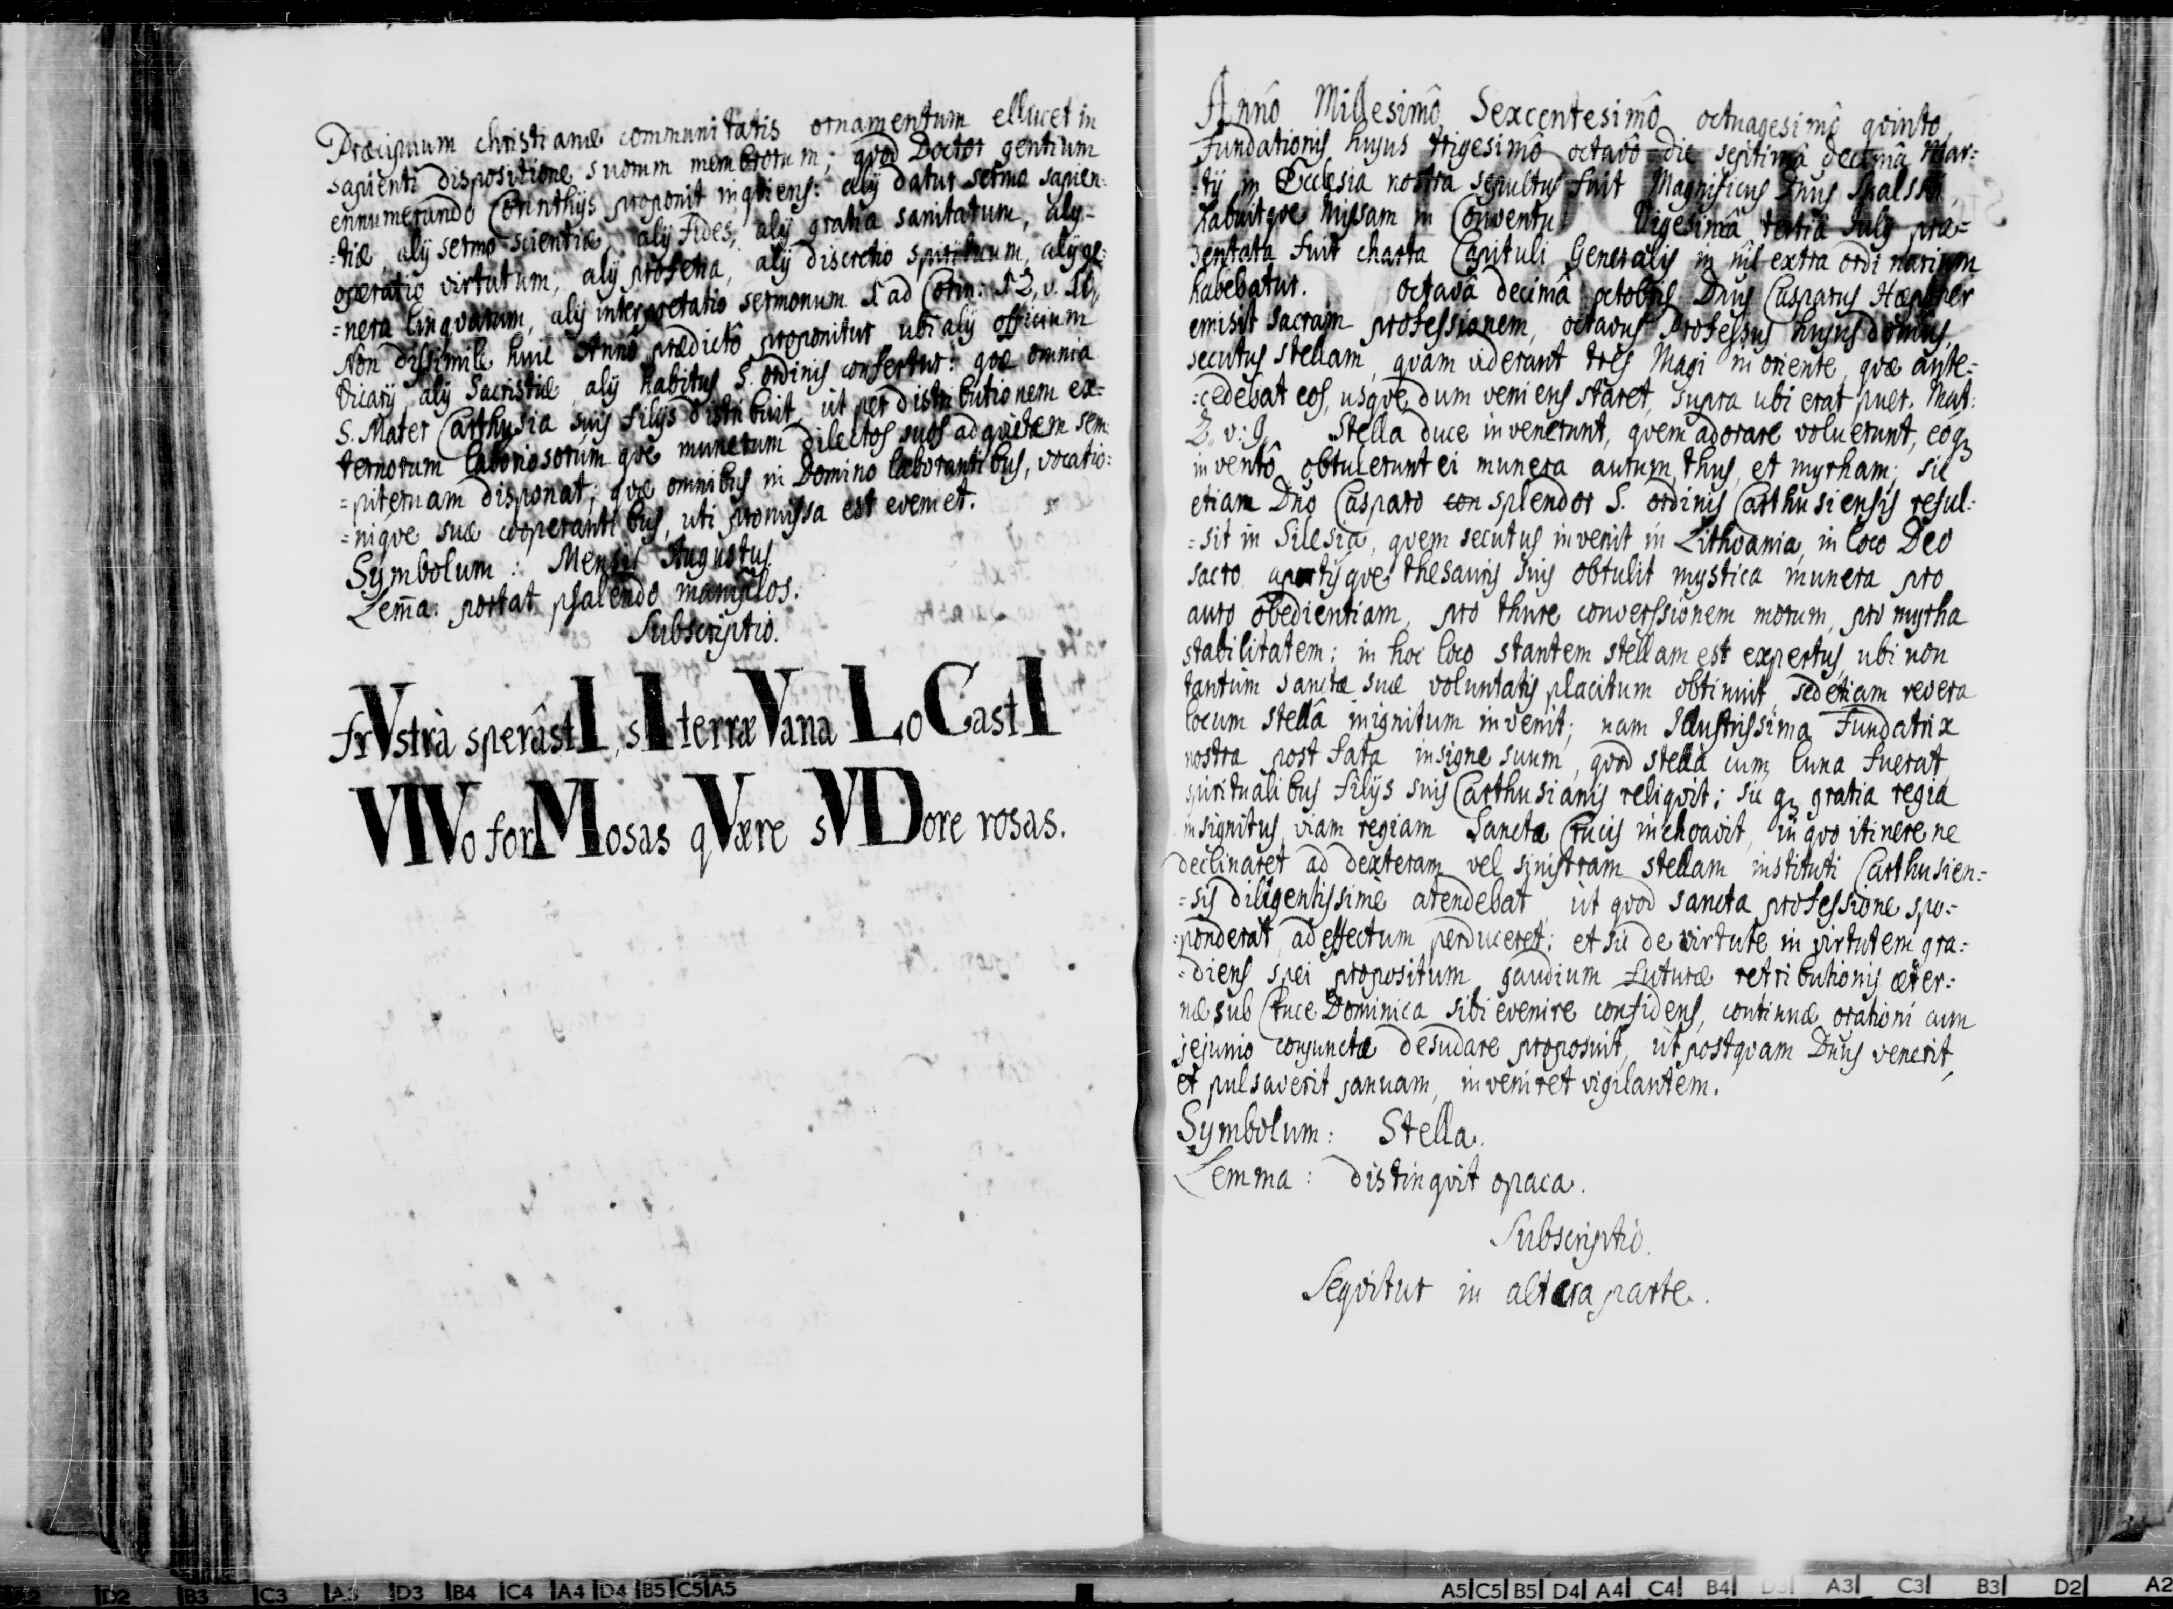 Præcipuum christianæ communitatis ornamentum ellucet in
sapienti dispositione suorum membrorum; qvod Doctor gentium
ennumerando Corinthijs proponit inqviens: alij datur sermo sapien-
=tiæ, alij sermo scientiæ, alij fides, alij gratia sanitatum, alij-
operatio virtutum, alij profetia, alij discretio spirituum, alij ge:
=nera lingvarum, alij interpretatio sermonum 1 ad Corin: 12, v.
Non dissimile huic Anno prædictô proponitur ubi alij officium
Vicarij alij Sacristiæ, alij habitus S. ordinis confertur: qvæ omnia
S. Mater Carthusia suis filijs distribuit, ut per distributionem ex=
ternorum laboriosorum qve munerum dilectos suos ad qvietem sem
=piternam disponat; qvæ omnibus in Domino laborantibus, vocatio:
=niqve suæ cooperantibus, uti promissa est eveniet.
Symbolum: Mensis Augustus.
Lem̃a: portat psalendo maniplos.
Subscriptio.
frVstrà sperâstI, sI terræ Vana LoCastI
VIVo forMosas qVære sVDore rosas.
Annô Millesimô Sexcentesimô octuagesimô qvinto,
Fundationis hujus trigesimô octavô die septimâ decimâ Mar:
=tij in Ecclesia nostra sepultus fuit Magnificus Dnus
habuitqve Missam in Conventu. Vigesimâ tertiâ July præ=
sentata fuit charta Capituli Generalis in nil extra ordinarium
habebatur. octavâ decimâ octobris Dnus Casparus
emisit sacram professionem, octavus Professus hujus domus,
secutus stellam, qvam viderant tres Magi in oriente, qvæ ante=
:cedebat eos, usqve dum veniens staret, supra ubi erat puer. Mat:
2, v: 9. Stella duce invenerunt, qvem adorare voluerunt, eoq3
inventô obtulerunt ei munera aurum, thus, et myrham; sic
etiam Dno Casparo con splendor S. ordinis Carthusiensis reful:
=sit in Silesia, qvem secutus invenit in Lithvania, in loco Deo
sacro apertijsqve thesauris suis obtulit mystica munera pro
auro obedientiam, pro thure converssionem morum, pro myrha
stabilitatem: in hoc loco stantem stellam est expertus, ubi non
tantum sanctæ suæ voluntatis placitum obtinuit, sed etiam revera
locum stellâ insignitum invenit; nam Illustrissima Fundatrix
nostra post fata insigne suum, qvod stella cum luna fuerat,
spiritualibus filijs suis Carthusianis reliqvit; sic q3 gratia regia
insignitus viam regiam Sanctæ Crucis inchoavit, in qvo itinere ne
declinaret ad dexteram vel sinistram stellam instituti Carthusien=
=sis diligentissimè atendebat, ùt qvod sancta professione spo=
:ponderat, ad effectum perduceret; et sic de virtute in virtutem gra=
=diens spei propositum gaudium futuræ retributionis æter=
næ sub Cruce Dominica sibi evenire confidens, continuæ orationi cum
jejunio conjunctæ desudare proposuit, ùt postqvam Dnus venerit,
et pulsaverit januam, inveniret vigilantem.
Symbolum: Stella.
Lemma: distingvit opaca.
Subscriptio.
Seqvitur in altera parte.